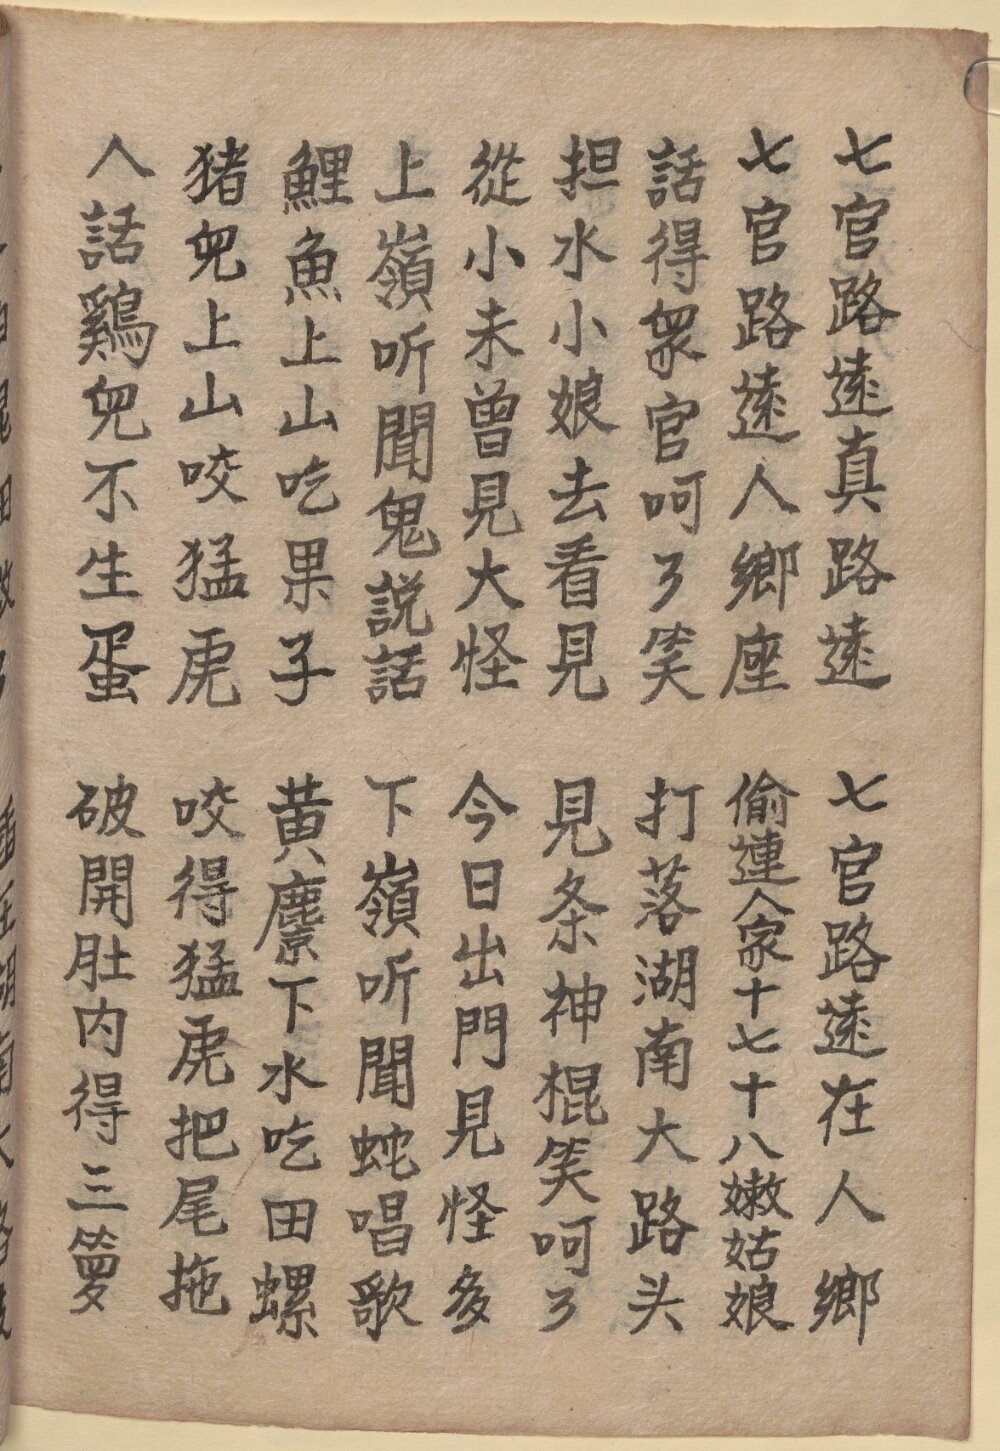 七官路遠真路遠 七官路遠在人鄉
七官路遠人鄉座 偷連人家十七十八嫩姑娘
話得眾官呵〻笑 打落湖南大路头
担水小娘去看見 見条神棍笑呵〻
從小未曾見大怪 今日出門見怪多
上嶺听聞鬼説話 下嶺听聞蛇唱歌
鯉魚上山吃果子 黄麖下水吃田螺
猪兒上山咬猛虎 咬得猛虎把尾拖
人話鷄兒不生蛋 破開肚内得三籮